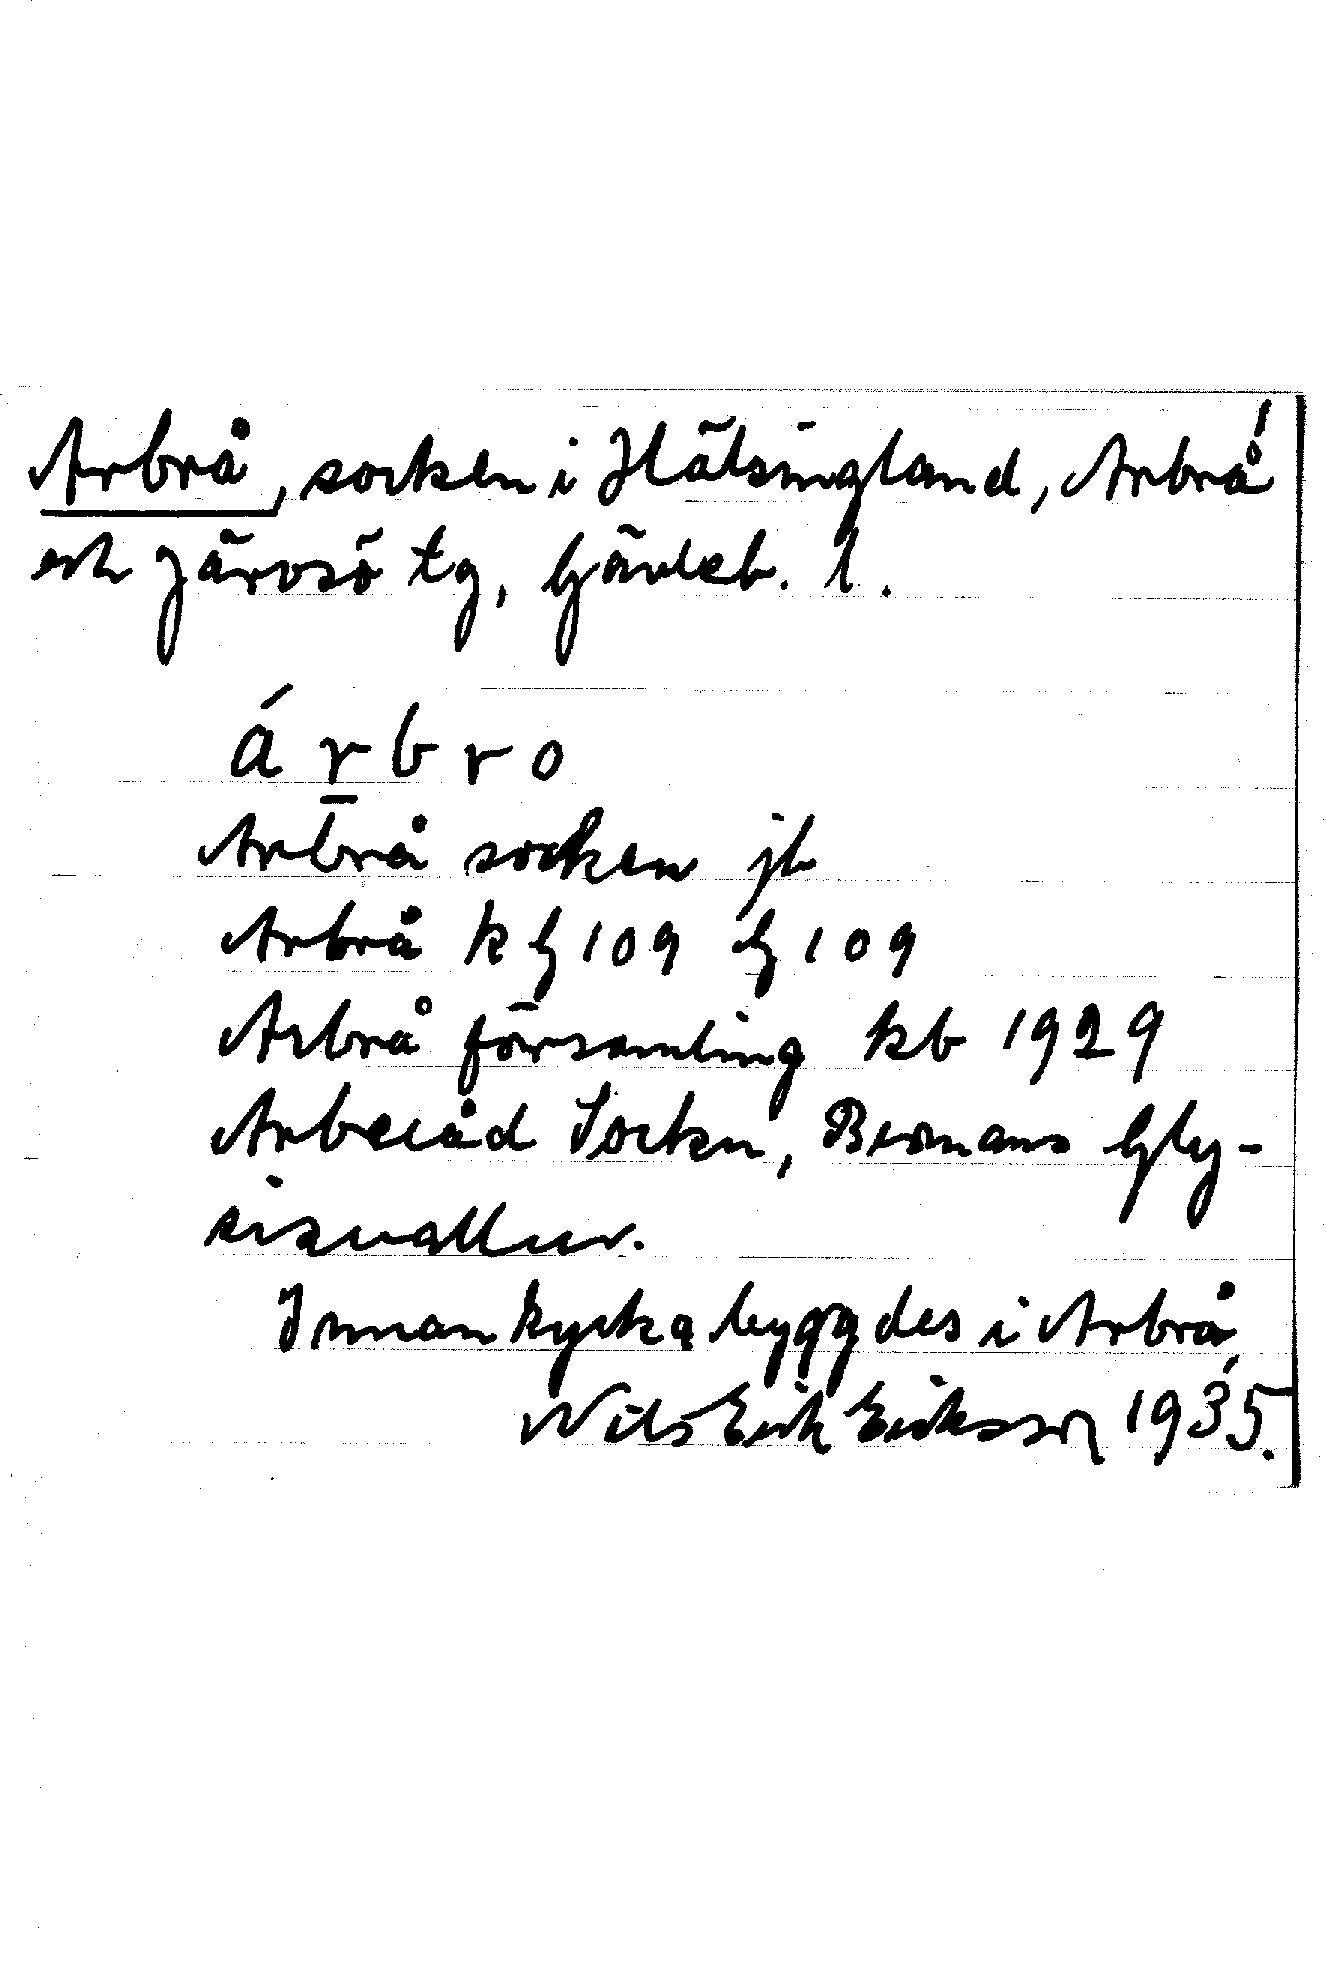 Arbrå, socken i Hälsingland, Arbrå
och Järvsö tg, Gävleb. l.
árbro
Arbrå socken jb
Arbrå k G 109 G 109
Arbrå församling kb 1929
Arbråd Socken, Bromans Gly-
sisvallur.
Innan kyrka byggdes i Arbrå
Nils Erik Eriksson 1935.